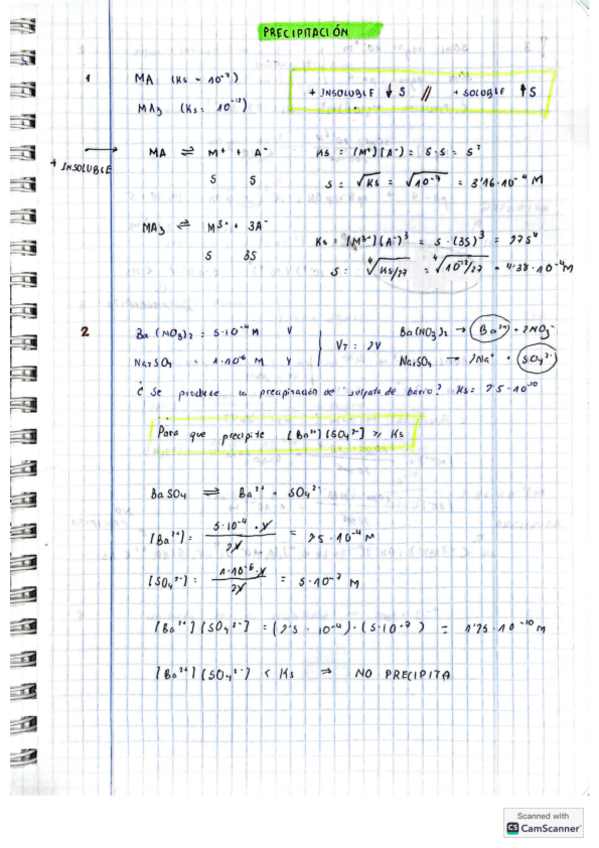 PRECIPITACIÓN
1 MA (Ks = 10⁻⁷)
MA₃ (Ks: 10⁻¹²)
+ INSOLUBLE ↓ S // + SOLUBLE ↑ S
+ INSOLUBLE
MA ⇌ M⁺ + A⁻ Ks = [M⁺][A⁻] = S·S = S²
S S S = √Ks = √10⁻⁷ = 3'16·10⁻⁴ M
MA₃ ⇌ M³⁺ + 3A⁻ Ks = [M³⁺][A⁻]³ = S·(3S)³ = 27S⁴
S 3S S = ⁴√Ks/27 = ⁴√10⁻¹²/27 = 4'38·10⁻⁴ M
2 Ba(NO₃)₂ = 5·10⁻⁴ M V Ba(NO₃)₂ → Ba²⁺ + 2NO₃⁻
VT = 2V
Na₂SO₄ = 1·10⁻⁶ M V Na₂SO₄ → 2Na⁺ + SO₄²⁻
¿ Se produce la precipitación de sulfato de bário? Ks = 2'5·10⁻¹⁰
Para que precipite [Ba²⁺][SO₄²⁻] ≥ Ks
BaSO₄ ⇌ Ba²⁺ + SO₄²⁻
[Ba²⁺] = 5·10⁻⁴·V / 2V = 2'5·10⁻⁴ M
[SO₄²⁻] = 1·10⁻⁶·V / 2V = 5·10⁻⁷ M
[Ba²⁺][SO₄²⁻] = (2'5·10⁻⁴)·(5·10⁻⁷) = 1'25·10⁻¹⁰ M
[Ba²⁺][SO₄²⁻] < Ks ⇒ NO PRECIPITA
Scanned with
CS CamScanner